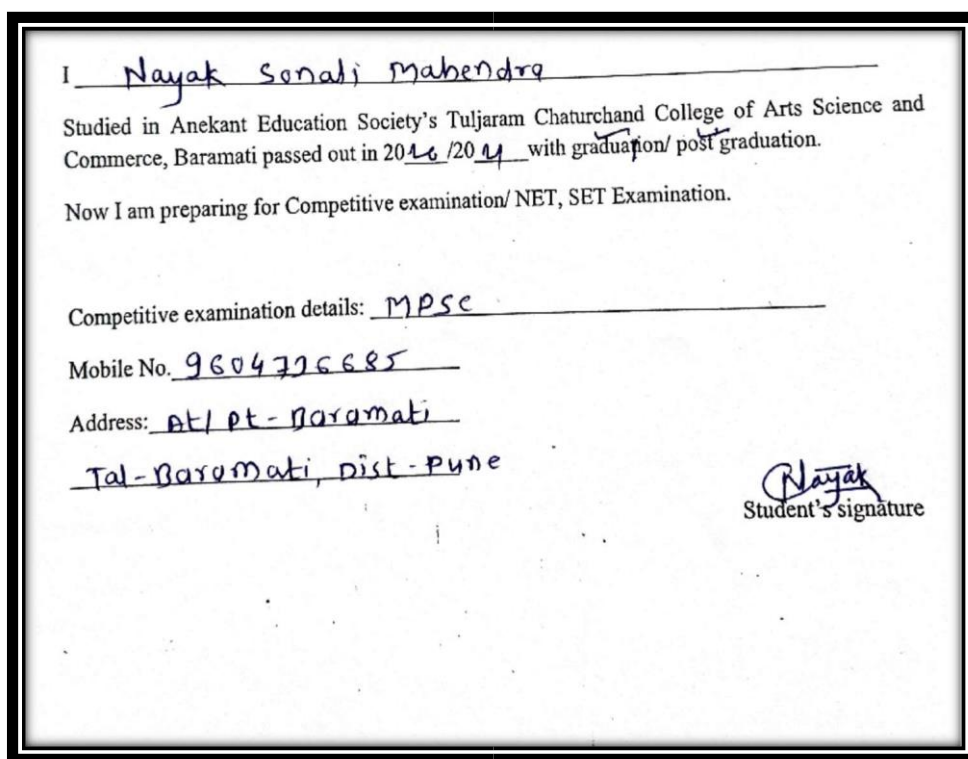 I Nayak Sonali Mahendra
Studied in Anekant Education Society's Tuljaram Chaturchand College of Arts Science and
Commerce, Baramati passed out in 20 /20 with graduation/ post graduation.
Now I am preparing for Competitive examination/ NET, SET Examination.
Competitive examination details: MPSC
Mobile No. 9604726685
Address: At/ Pt - Baramati
Tal - Baramati, Dist - Pune
Nayak
Student's signature